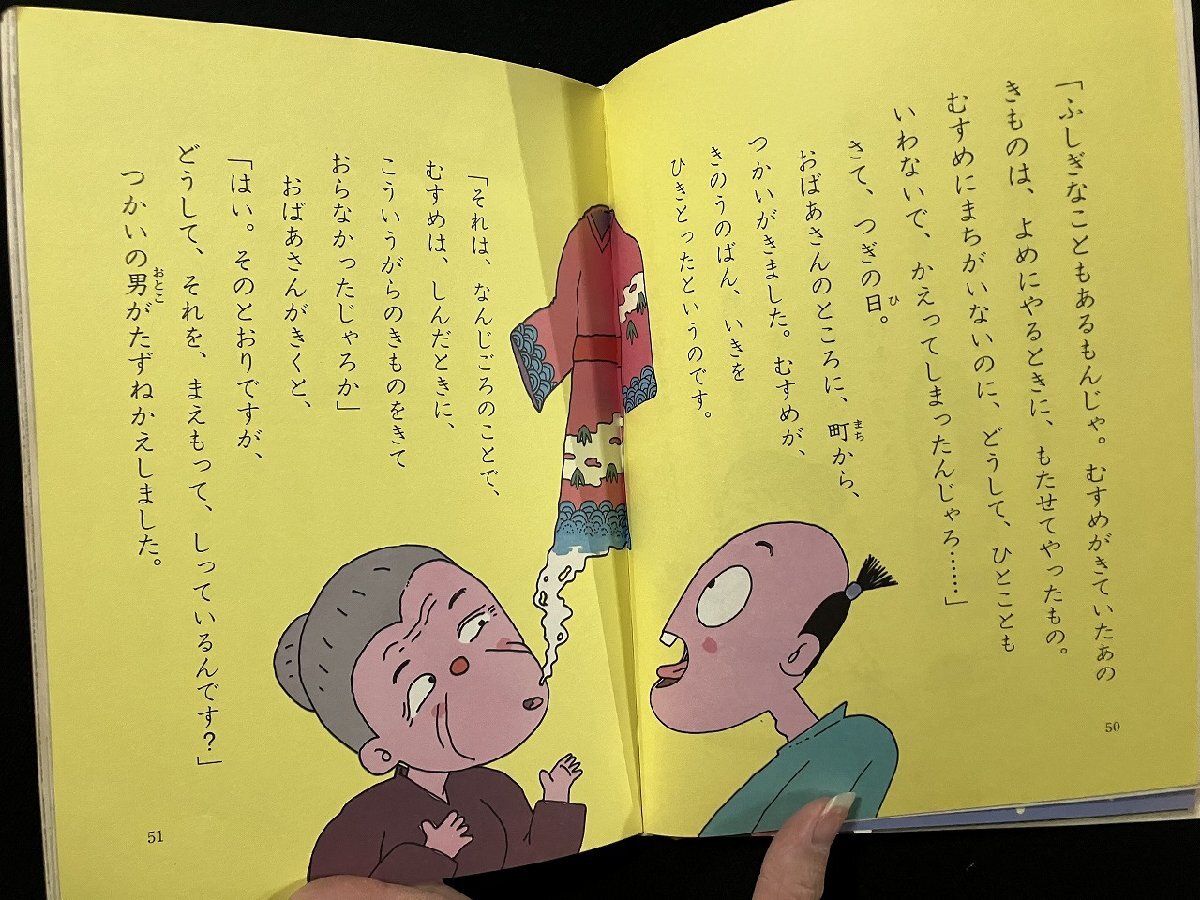 「ふしぎなこともあるもんじゃ。むすめがきていたあの
きものは、よめにやるときに、もたせてやったもの。
むすめにまちがいないのに、どうして、ひとことも
いわないで、かえってしまったんじゃろ……」
さて、つぎの日。
ひ
おばあさんのところに、町から、
まち
つかいがきました。むすめが、
きのうのばん、いきを
ひきとったというのです。
50
「それは、なんじごろのことで、
むすめは、しんだときに、
こういうがらのきものをきて
おらなかったじゃろか」
おばあさんがきくと、
「はい。そのとおりですが、
どうして、それを、まえもって、しっているんです?」
つかいの男がたずねかえしました。
おとこ
51